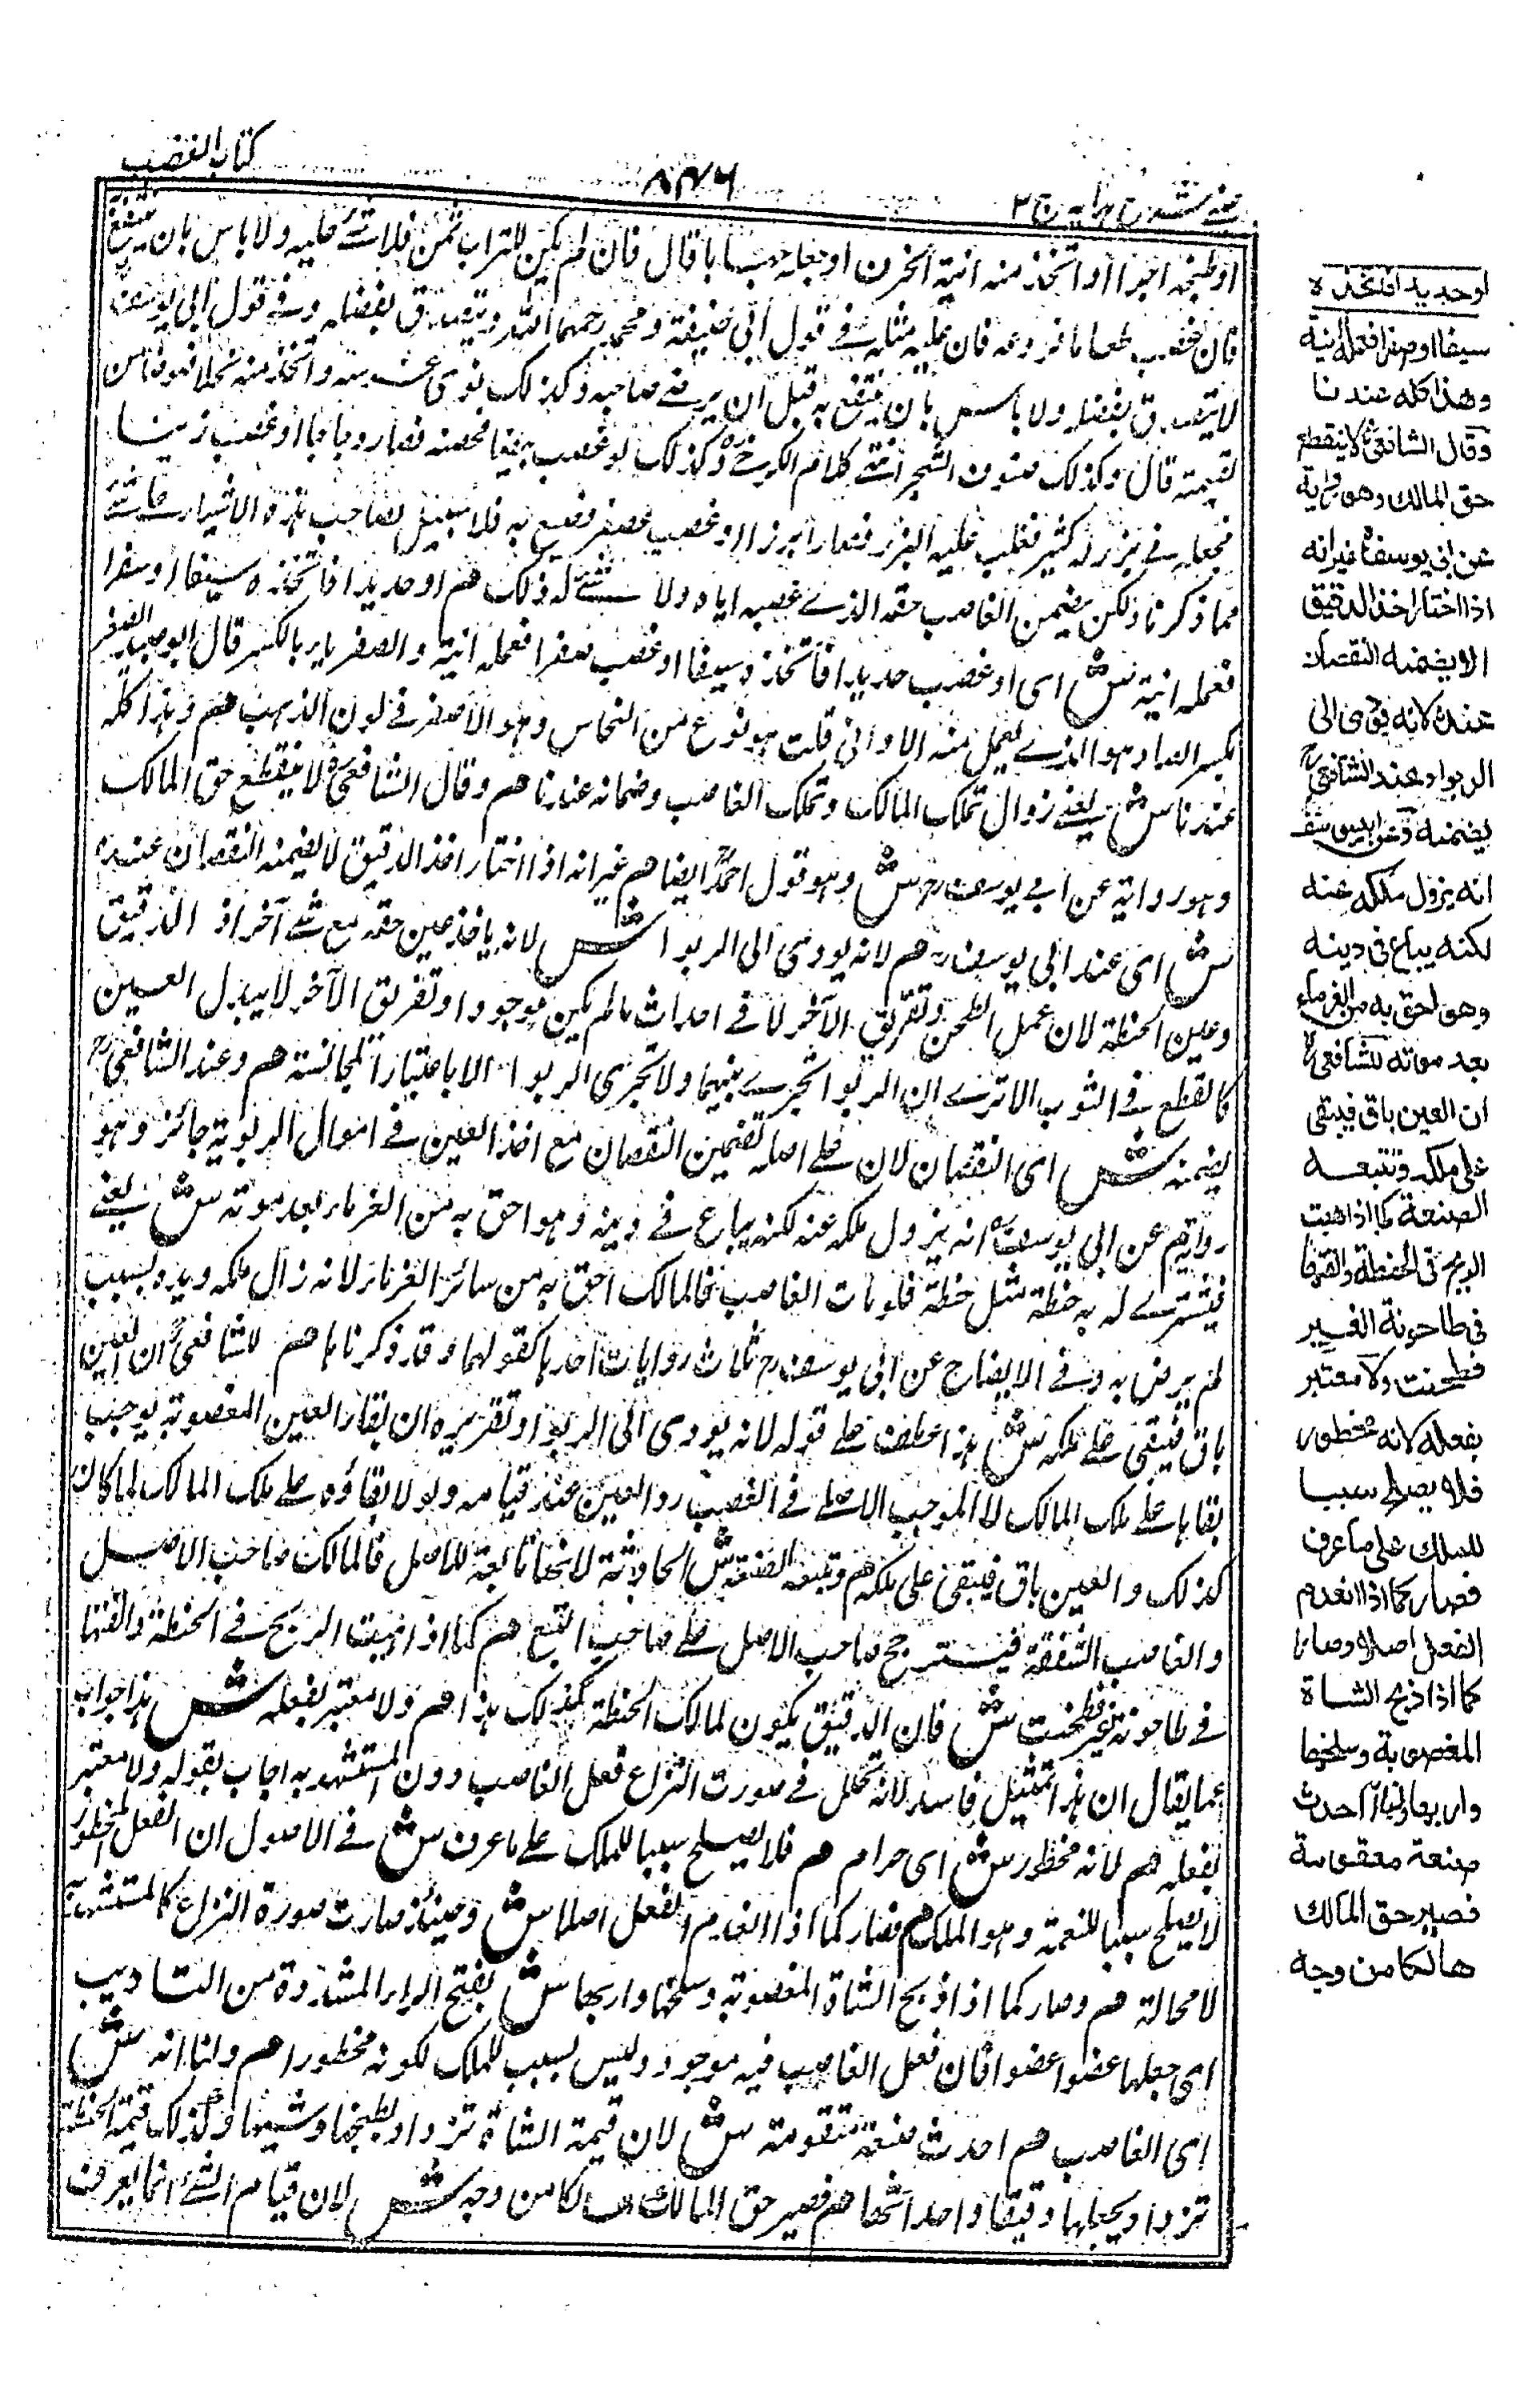 كتاب الغصب
٨٣٦
عينى شرح هدايه ج ٣
او طبخه اجرا او اتخذ منه انية الخزف او جعله حبابا قال فان لم يكن للتراب ثمن فلا شئ عليه ولا باس بان ينتفع
فان غصب طعاما فزرعه فان عليه مثله فى قول ابى حنيفة ومحمد رحمهما الله ويتصدق بفضله وفى قول ابى يوسف
لا يتصدق بفضله ولا باس بان ينتفع به قبل ان يرضى صاحبه وكذلك نوى غصبه واتخذ منه نخلا فهو ضامن
لقيمته قال وكذلك غصون الشجر انتهى كلام الكرخى وكذلك لو غصب بيضا فحضنه فصار دجاجا او غصب زيتا
فجعله فى بزر له كثير فغلب عليه البزر فصار بزرا او غصب عصفر فصبغ به فلا سبيل لصاحب هذه الاشياء على شئ
مما ذكرنا ولكن يضمن الغاصب حقه الذى غصبه اياه ولا شئ له غير ذلك هم او حديدا فاتخذه سيفا او صفرا
فعمله انية ش اى او غصب حديدا فاتخذه سيفا او غصب صفرا فعمله انية والصفر بالكسر قال ابو عبيد الصفر
بكسر الصاد وهو الذى يعمل منه الاوانى قلت هو نوع من النحاس وهو الاصفر فى لون الذهب هم وهذا كله
عندنا ش يعنى زوال تملك المالك وتملك الغاصب وضمانه عندنا هم وقال الشافعى لا ينقطع حق المالك
وهو رواية عن ابى يوسف ش وهو قول احمد ايضا هم غير انه اذا اختار اخذ الدقيق لا يضمنه النقصان عنده
ش اى عند ابى يوسف هم لانه يؤدى الى الربوا ش لانه ياخذ عين حقه مع شئ آخر اذ الدقيق
وعين الحنطة لان عمل الطحن وتفريق الآخر لا فى احداث مالم يكن موجودا وتفريق الآخر لا يبدل العين
كالقطع فى الثوب الا ترى ان الربوا تجرى بينهما ولا تجرى الربوا الا باعتبار المجانسة هم وعند الشافعى
يضمنه ش اى النقصان لان على اصله تضمين النقصان مع اخذ العين فى اموال الربوية جائز وهو
رواية هم عن ابى يوسف انه يزول ملكه عنه لكنه يباع فى دينه وهو احق به من الغرماء بعد موته ش يعنى
فيشترى له به حنطة مثل حنطة فلو مات الغاصب فالمالك احق به من سائر الغرماء لانه زال ملكه ويده بسبب
لم يرض به وفى الايضاح عن ابى يوسف ثلاث روايات احدها كقولهما وقد ذكرناها هم للشافعى ان العين
باق فيبقى على ملكه ش هذا عطف على قوله لانه يؤدى الى الربوا وتقريره ان بقاء العين المغصوبة يوجب
بقاءها على ملك المالك لا الموجب الاصلى فى الغصب رد العين عند قيامه ولولا بقاؤه على ملك المالك لما كان
كذلك والعين باق فيبقى على ملكه هم وتتبعه الصنعة ش الحادثة لانها تابعة للاصل فالمالك صاحب الاصل
والغاصب الشفقة فيترجح صاحب الاصل على صاحب التبع هم كما اذا هبت الريح فى الحنطة والقتها
فى طاحونة غير فطحنت ش فان الدقيق يكون لمالك الحنطة كذلك هذا هم ولا معتبر بفعله ش هذا جواب
عما يقال ان هذا تمثيل فاسد لانه تخلل فى صورت النزاع فعل الغاصب دون المستشهد به اجاب بقوله ولا معتبر
بفعله هم لانه محظور ش اى حرام هم فلا يصلح سببا للملك على ما عرف ش فى الاصول ان الفعل المحظور
لا يصلح سببا للنعمة وهو الملك هم فصار كما اذا انعدم الفعل اصلا ش وحينئذ صارت صورة النزاع كالمستشهد به
لا محالة هم وصار كما اذا ذبح الشاة المغصوبة وسلخها واربها ش بفتح الراء المشددة من التاديب
اى جعلها عضوا عضوا فان فعل الغاصب فيه موجود وليس بسبب للملك لكونه محظورا هم ولنا انه ش
اى الغاصب هم احدث صنعة متقومة ش لان قيمة الشاة تزداد بطبخها وشيها وكذلك قيمة الحنطة
تزداد بجعلها دقيقا واحداثها هم فصير حق المالك هالكا من وجه ش لان قيام الشئ انما يعرف
او حديدا فاتخذه
سيفا او صفرا فعمله انية
وهذا كله عندنا
وقال الشافعى لا ينقطع
حق المالك وهو رواية
عن ابى يوسف غير انه
اذا اختار اخذ الدقيق
لا يضمنه النقصان
عنده لانه يؤدى الى
الربوا وعند الشافعى
يضمنه وعن ابى يوسف
انه يزول ملكه عنه
لكنه يباع فى دينه
وهو احق به من الغرماء
بعد موته للشافعى
ان العين باق فيبقى
على ملكه وتتبعه
الصنعة كما اذا هبت
الريح فى الحنطة والقتها
فى طاحونة الغير
فطحنت ولا معتبر
بفعله لانه محظور
فلا يصلح سببا
للملك على ما عرف
فصار كما اذا انعدم
الفعل اصلا وصار
كما اذا ذبح الشاة
المغصوبة وسلخها
واربها ولنا انه احدث
صنعة متقومة
فصير حق المالك
هالكا من وجه